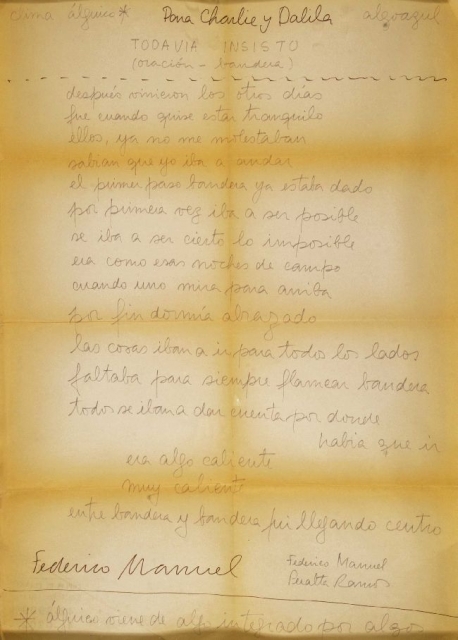 clima álguico* Para Charlie y Dalila algoazul
TODAVIA INSISTO
(oración - bandera)
después vinieron los otros días
fue cuando quise estar tranquilo
ellos, ya no me molestaban
sabian que yo iba a andar
el primer paso bandera ya estaba dado
por primera vez iba a ser posible
se iba a ser cierto lo imposible
era como esas noches de campo
cuando uno mira para arriba
por fin dormia abrazado
las cosas iban a ir para todo los lados
faltaba para siempre flamear bandera
todos se iban a dar cuenta por donde
habia que ir
era algo caliente
muy caliente
entre bandera y bandera fui llegando centro
Federico Manuel
Federico Manuel
Peralta Ramos
* álguico viene de algo integrado por algos